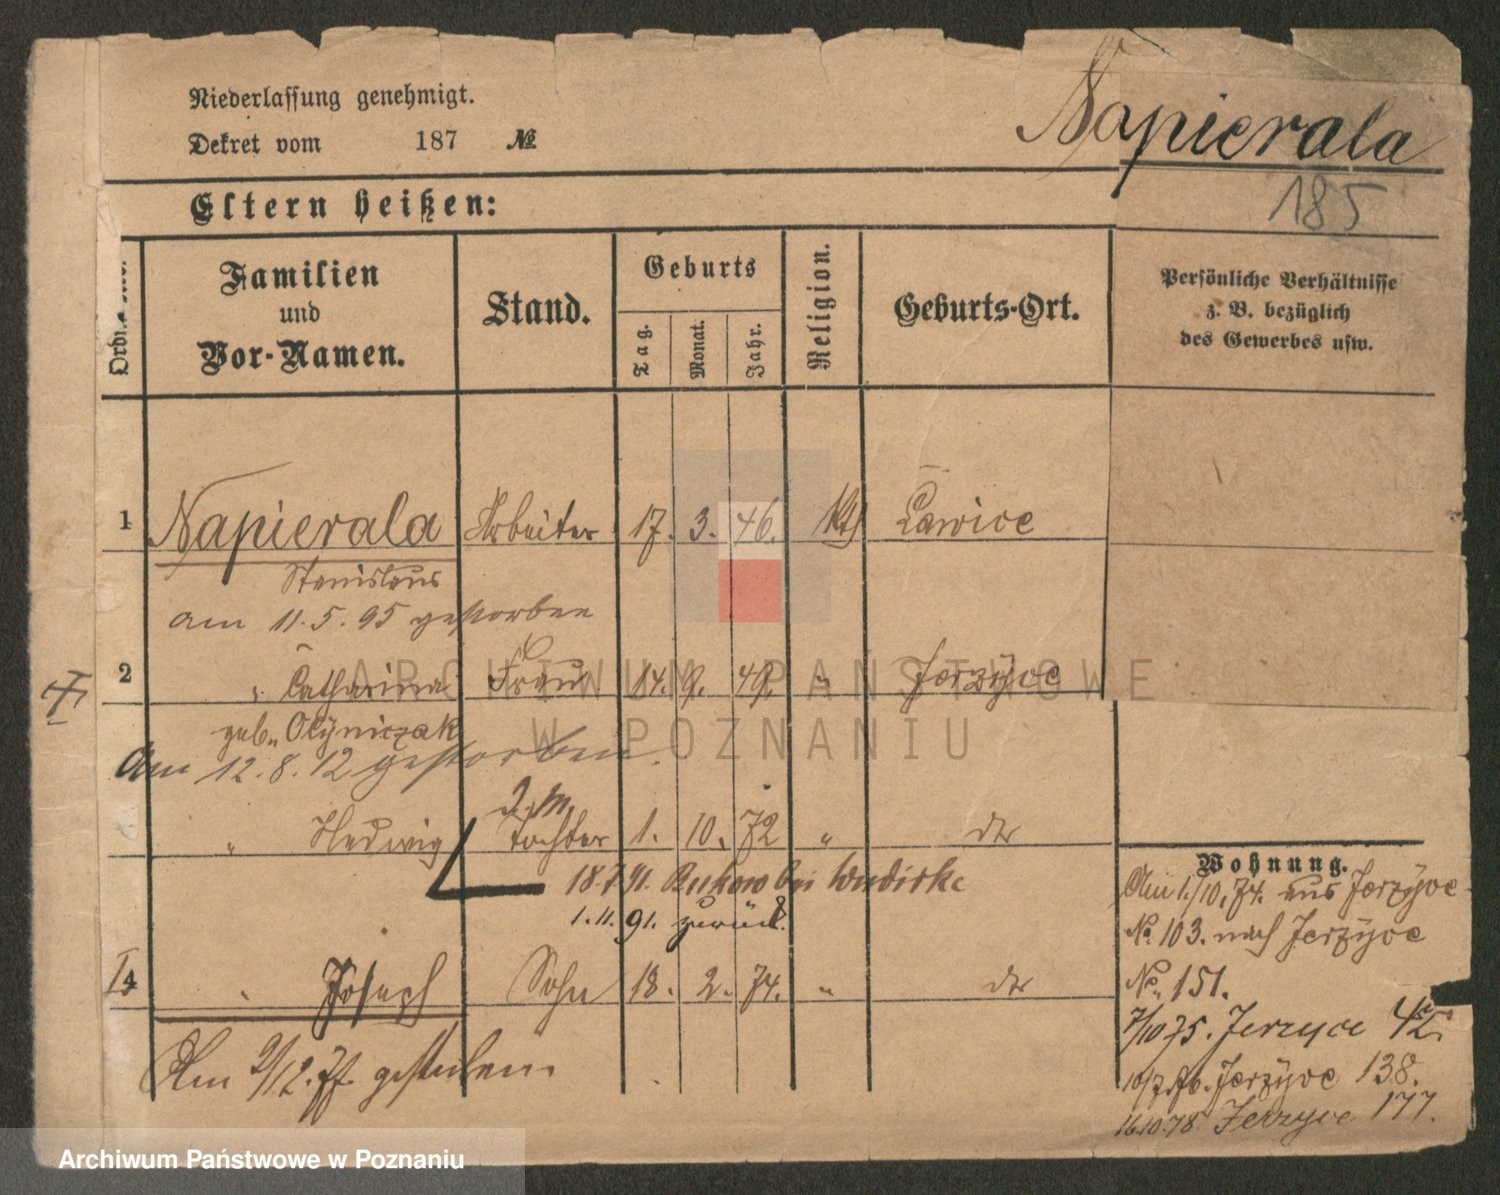 Niederlassung genehmigt.
Dekret vom 187 №
Napierala
185
Eltern heißen:
Ordn.
Familien
und
Vor-Namen.
Stand.
Geburts
Tag.
Monat.
Jahr.
Religion.
Geburts-Ort.
Persönliche Verhältnisse
z. B. bezüglich
des Gewerbes usw.
1 Napierala Arbeiter 17. 3. 46. kth Lawice
Stanislaus
am 11.5.95 gestorben
2 " Catharina Frau 14. 9. 49. " Jerzyce
geb. Olyniczak
Am 12.8.12 gestorben.
2. M.
" Hedwig Tochter 1. 10. 72 " do
18.7.91. Bukow bei
1.11.91. zurück.
4 " Joseph Sohn 18. 2. 74. " do
Am 9/12. 77. gestorben
Wohnung.
Am 1./10. 74. aus Jerzyce
No. 103. nach Jerzyce
No. 151.
7/10 75. Jerzyce 42.
Jerzyce 138.
16.10.78 Jerzyce 177.
ARCHIWUM PAŃSTWOWE
W POZNANIU
Archiwum Państwowe w Poznaniu